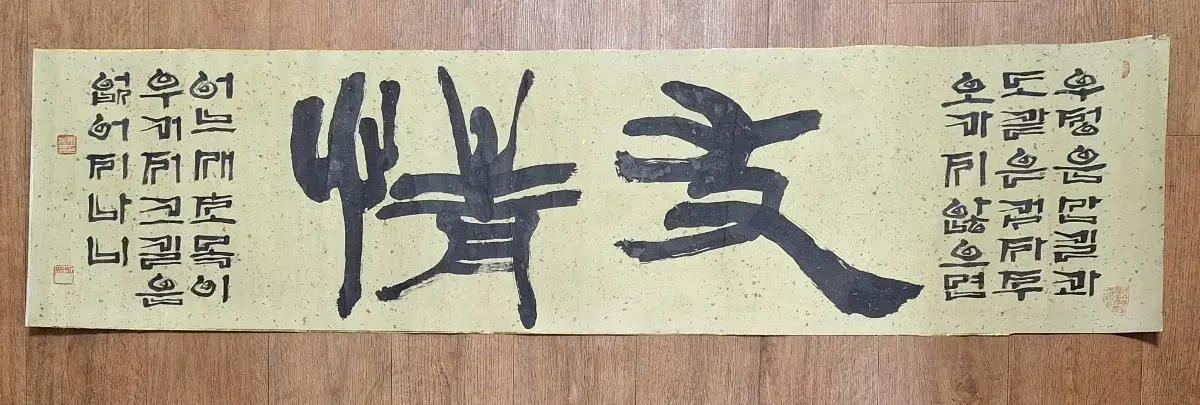 우정은산길과
도같은것자주
오가지않으면
友情
어느새초목이
우거져그길은
없어지나니